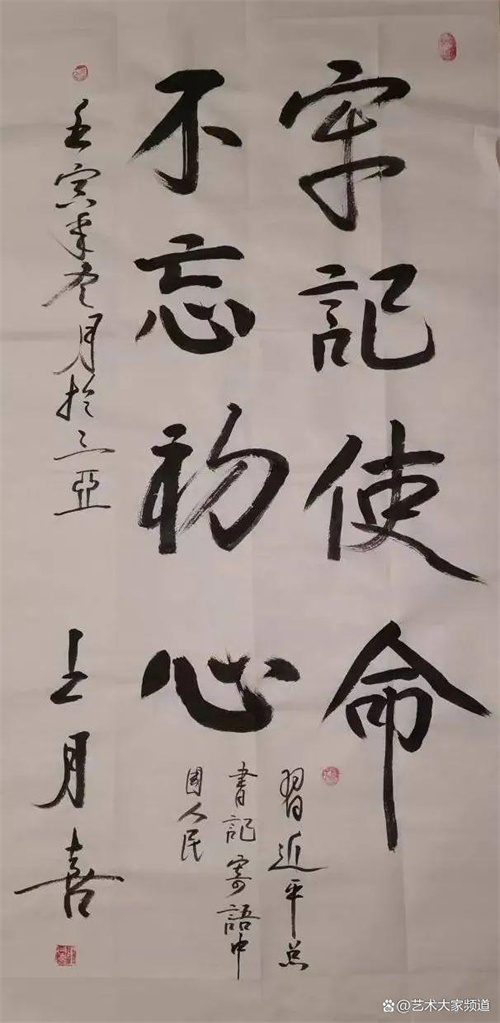 牢记使命
不忘初心
習近平总
書記寄語中
國人民
壬寅年冬月於三亞
王月喜
@艺术大家频道